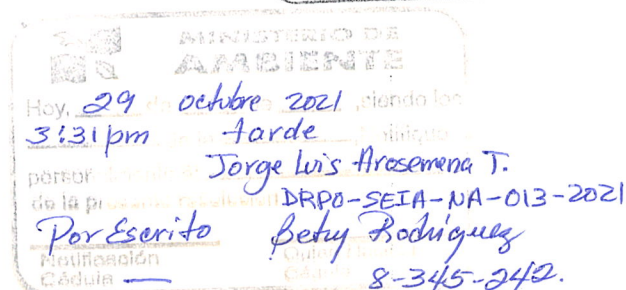 MINISTERIO DE
AMBIENTE
Hoy, 29 de octubre 2021, siendo las
3:31 pm tarde
Jorge Luis Arosemena T.
de la DRPO-SEIA-NA-013-2021
Por Escrito Betsy Rodriguez
Notificación
Cédula — 8-345-242.